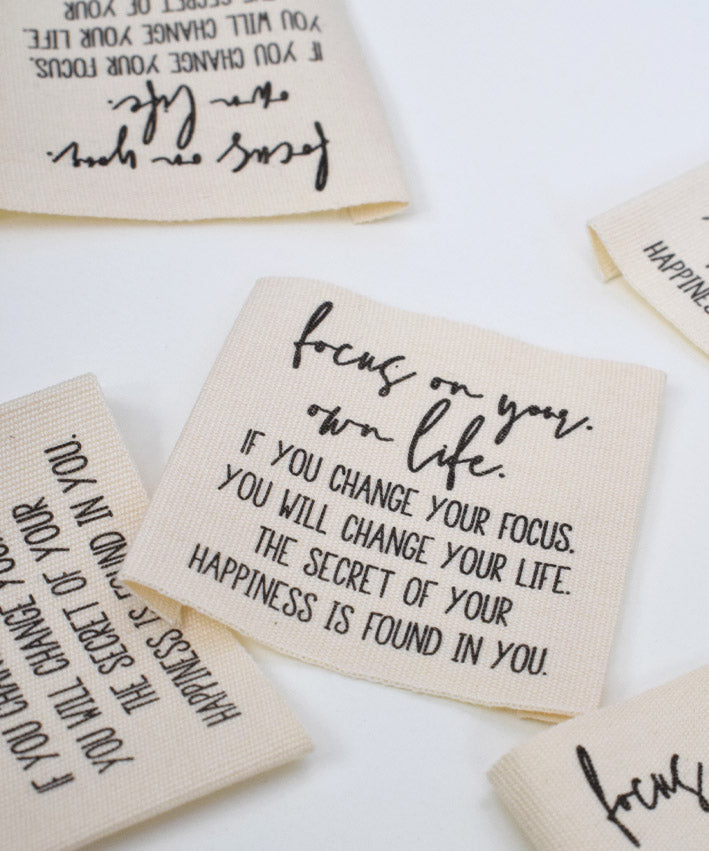 THE SECRET OF YOUR
YOU WILL CHANGE YOUR LIFE
IF YOU CHANGE YOUR FOCUS.
own life.
focus on your.
HAPPINESS
focus on your.
own life.
IF YOU CHANGE YOUR FOCUS.
YOU WILL CHANGE YOUR LIFE.
THE SECRET OF YOUR
HAPPINESS IS FOUND IN YOU.
IF YOU CHANGE
YOU WILL CHANGE YOUR
THE SECRET OF YOUR
HAPPINESS IS FOUND IN YOU.
focus